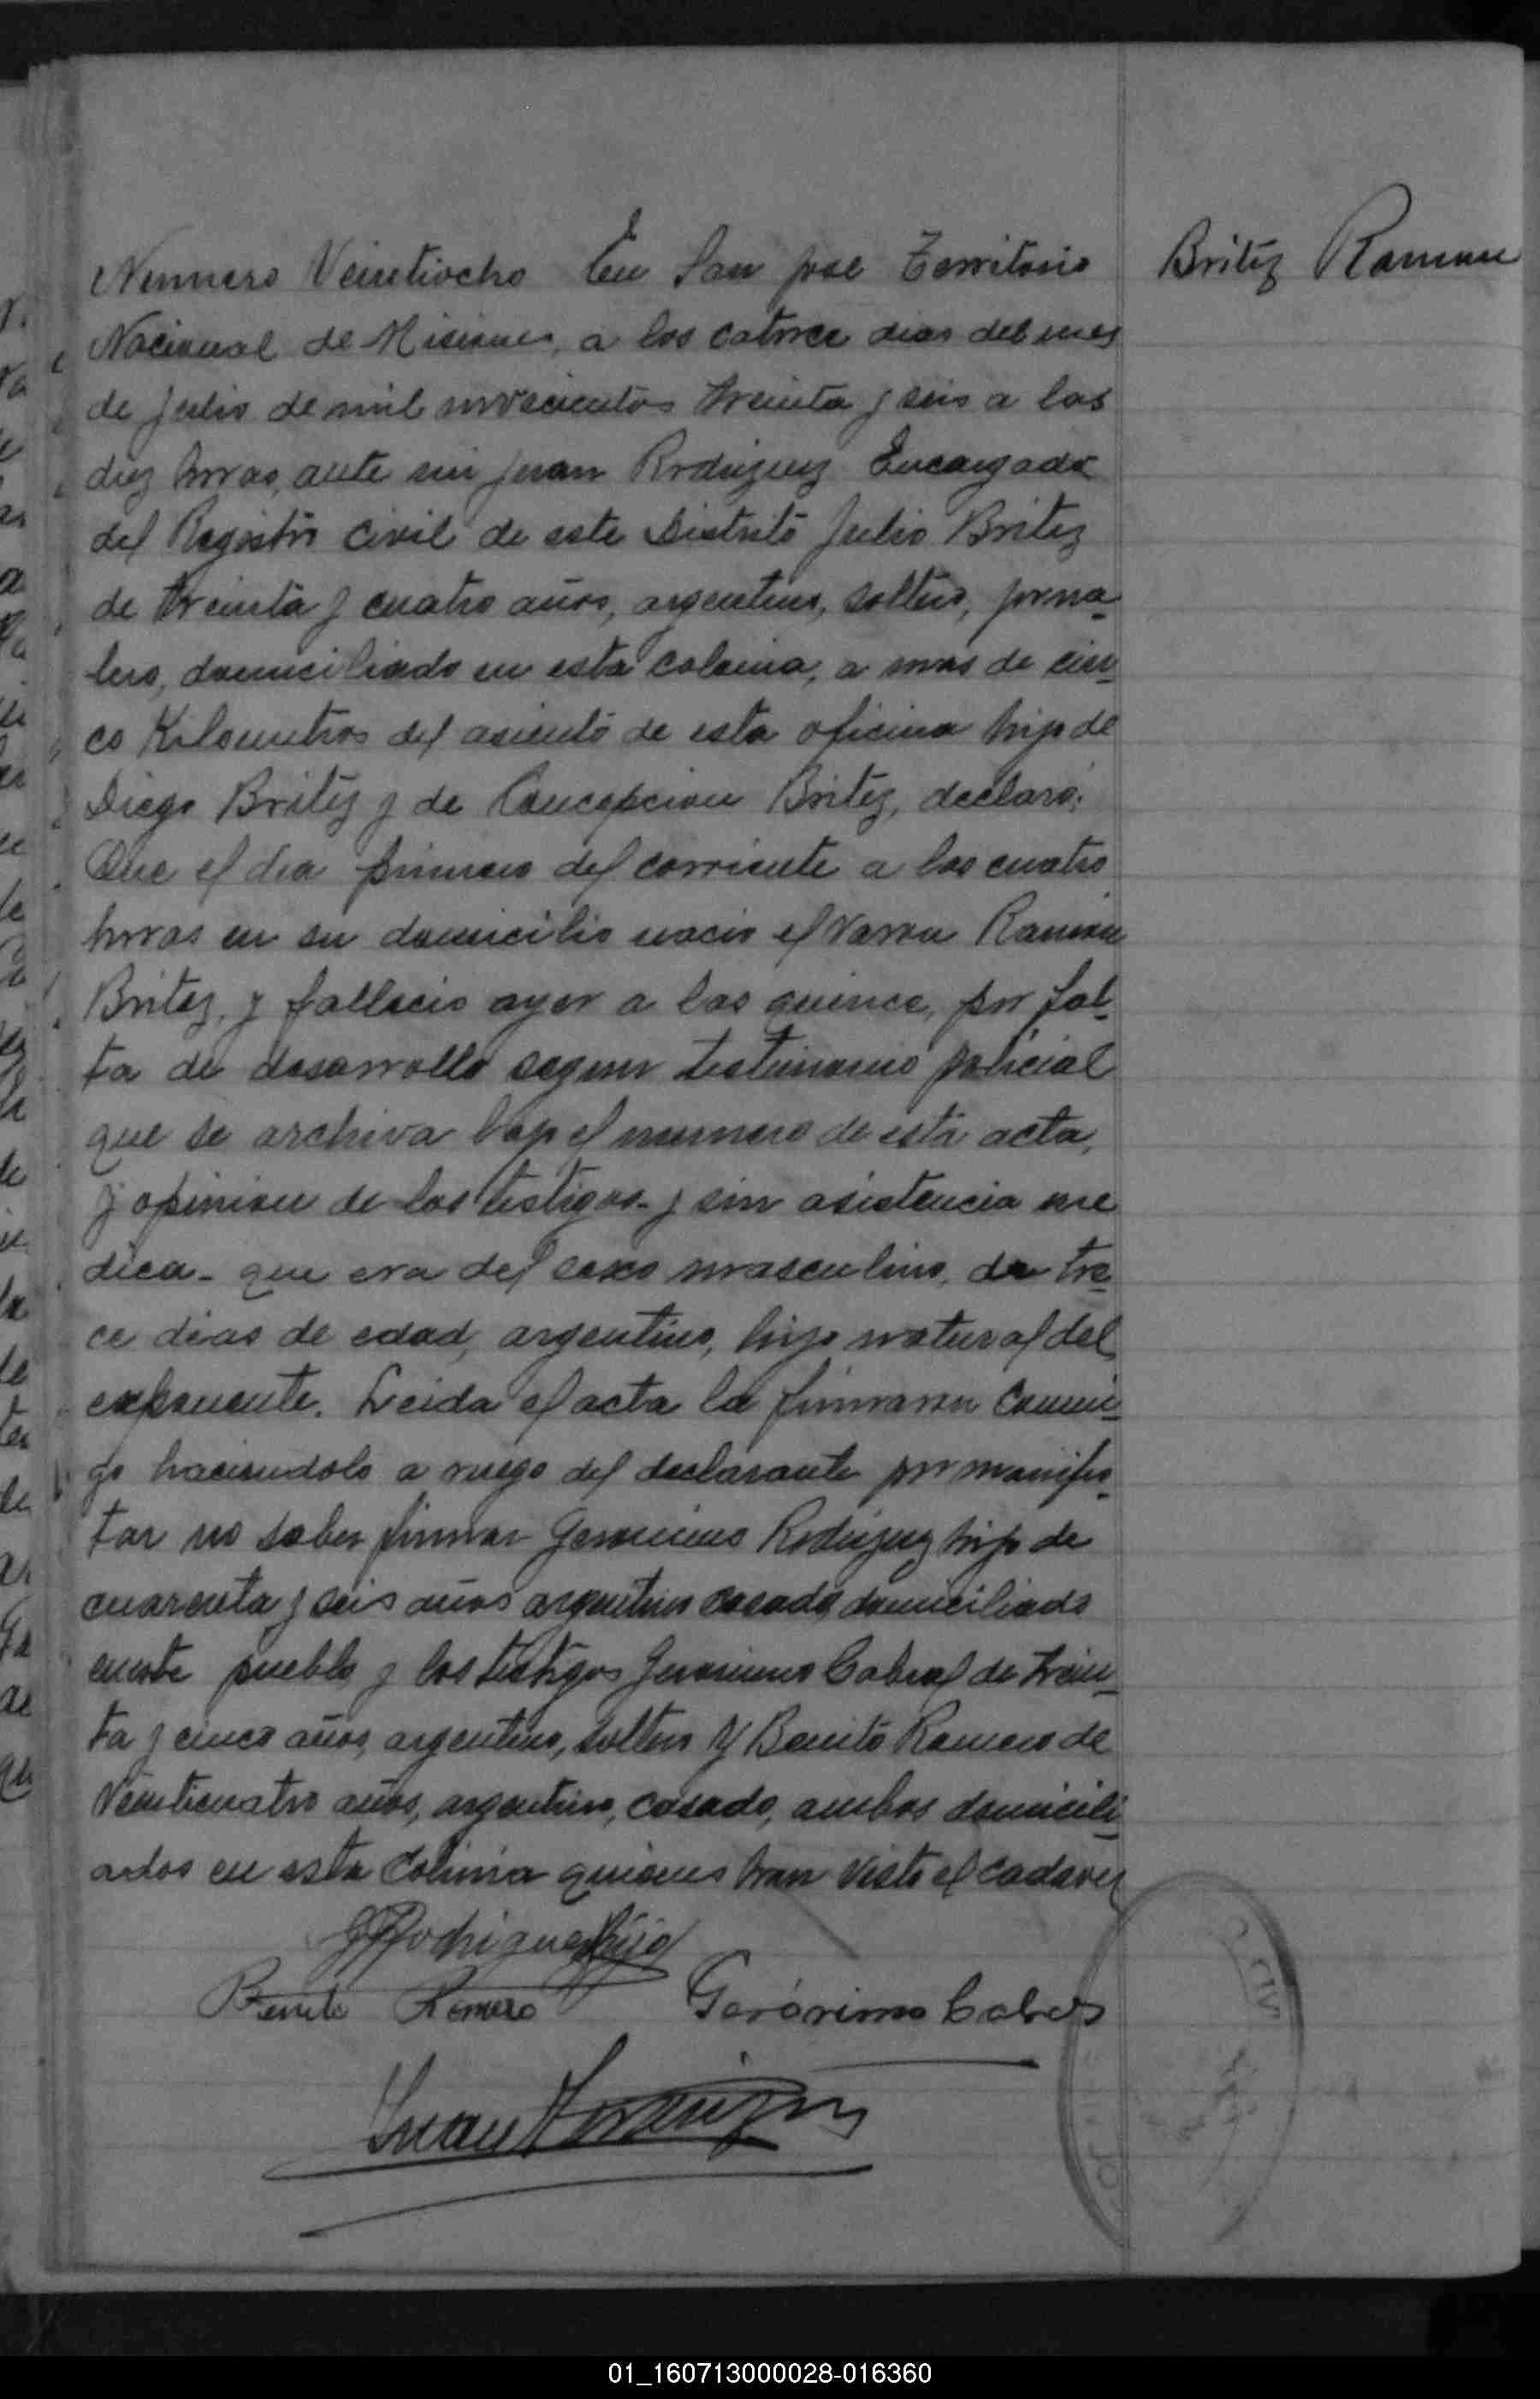 Numero Veintiocho En San José Territorio
Britez Ramon
Nacional de Misiones, a los catorce dias del mes
de Julio de mil novecientos treinta y seis a las
diez horas, ante mi Juan Rodriguez Encargado
del Registro Civil de este Distrito Julio Britez
de treinta y cuatro años, argentino, soltero, jorna-
lero, domiciliado en esta colonia, a mas de cin-
co Kilometros del asiento de esta oficina hijo de
Diego Britez y de Concepcion Britez, declaró:
Que el dia primero del corriente a las cuatro
horas en su domicilio nacio el varon Ramon
Britez, y fallecio ayer a las quince, por fal-
ta de desarrollo segun testimonio policial
que se archiva bajo el numero de esta acta,
y opinion de los testigos- y sin asistencia me
dica- que era del sexo masculino, de tre-
ce dias de edad, argentino, hijo natural del
exponente. Leida el acta la firmaron conmi-
go haciendolo a ruego del declarante por manifes-
tar no saber firmar Geronimo Rodriguez hijo de
cuarenta y seis años argentino casado domiciliado
eneste pueblo y los testigos Geronimo Cabral de trein-
ta y cinco años, argentino, soltero y Benito Romero de
Veinticuatro años, argentino, casado, ambos domicili-
ados en esta Colonia quienes han visto el cadaver
G Rodriguez hijo
Benito Romero Gerónimo Cabral
Juan Rodriguez
01_160713000028-016360